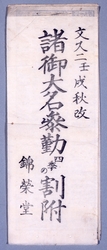 文久二壬戌秋改
諸御大名參勤四季の割附
錦榮堂